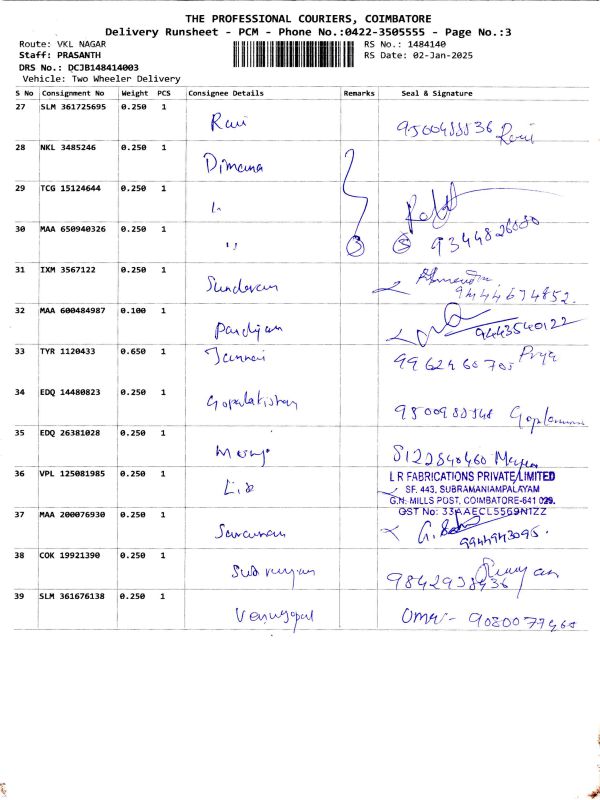 THE PROFESSIONAL COURIERS, COIMBATORE
Delivery Runsheet - PCM - Phone No.:0422-3505555 - Page No.:3
Route: VKL NAGAR RS No.: 1484140
Staff: PRASANTH RS Date: 02-Jan-2025
DRS No.: DCJB148414003
Vehicle: Two Wheeler Delivery
S No Consignment No Weight PCS Consignee Details Remarks Seal & Signature
27 SLM 361725695 0.250 1
Ravi Ravi
28 NKL 3485246 0.250 1
29 TCG 15124644 0.250 1
30 MAA 650940326 0.250 1
,, 3 5
31 IXM 3567122 0.250 1
Sundaram 9444674852.
32 MAA 600484987 0.100 1
Pandiyan 9443540122
33 TYR 1120433 0.650 1
9962460705 Priya
34 EDQ 14480823 0.250 1
Gopalakishan
35 EDQ 26381028 0.250 1
36 VPL 125081985 0.250 1
L R FABRICATIONS PRIVATE LIMITED
SF. 443, SUBRAMANIAMPALAYAM
G.N. MILLS POST, COIMBATORE-641 029.
GST No: 33AAECL5569N1ZZ
37 MAA 200076930 0.250 1
Saravanan 9944943095.
38 COK 19921390 0.250 1
39 SLM 361676138 0.250 1
Venugopal